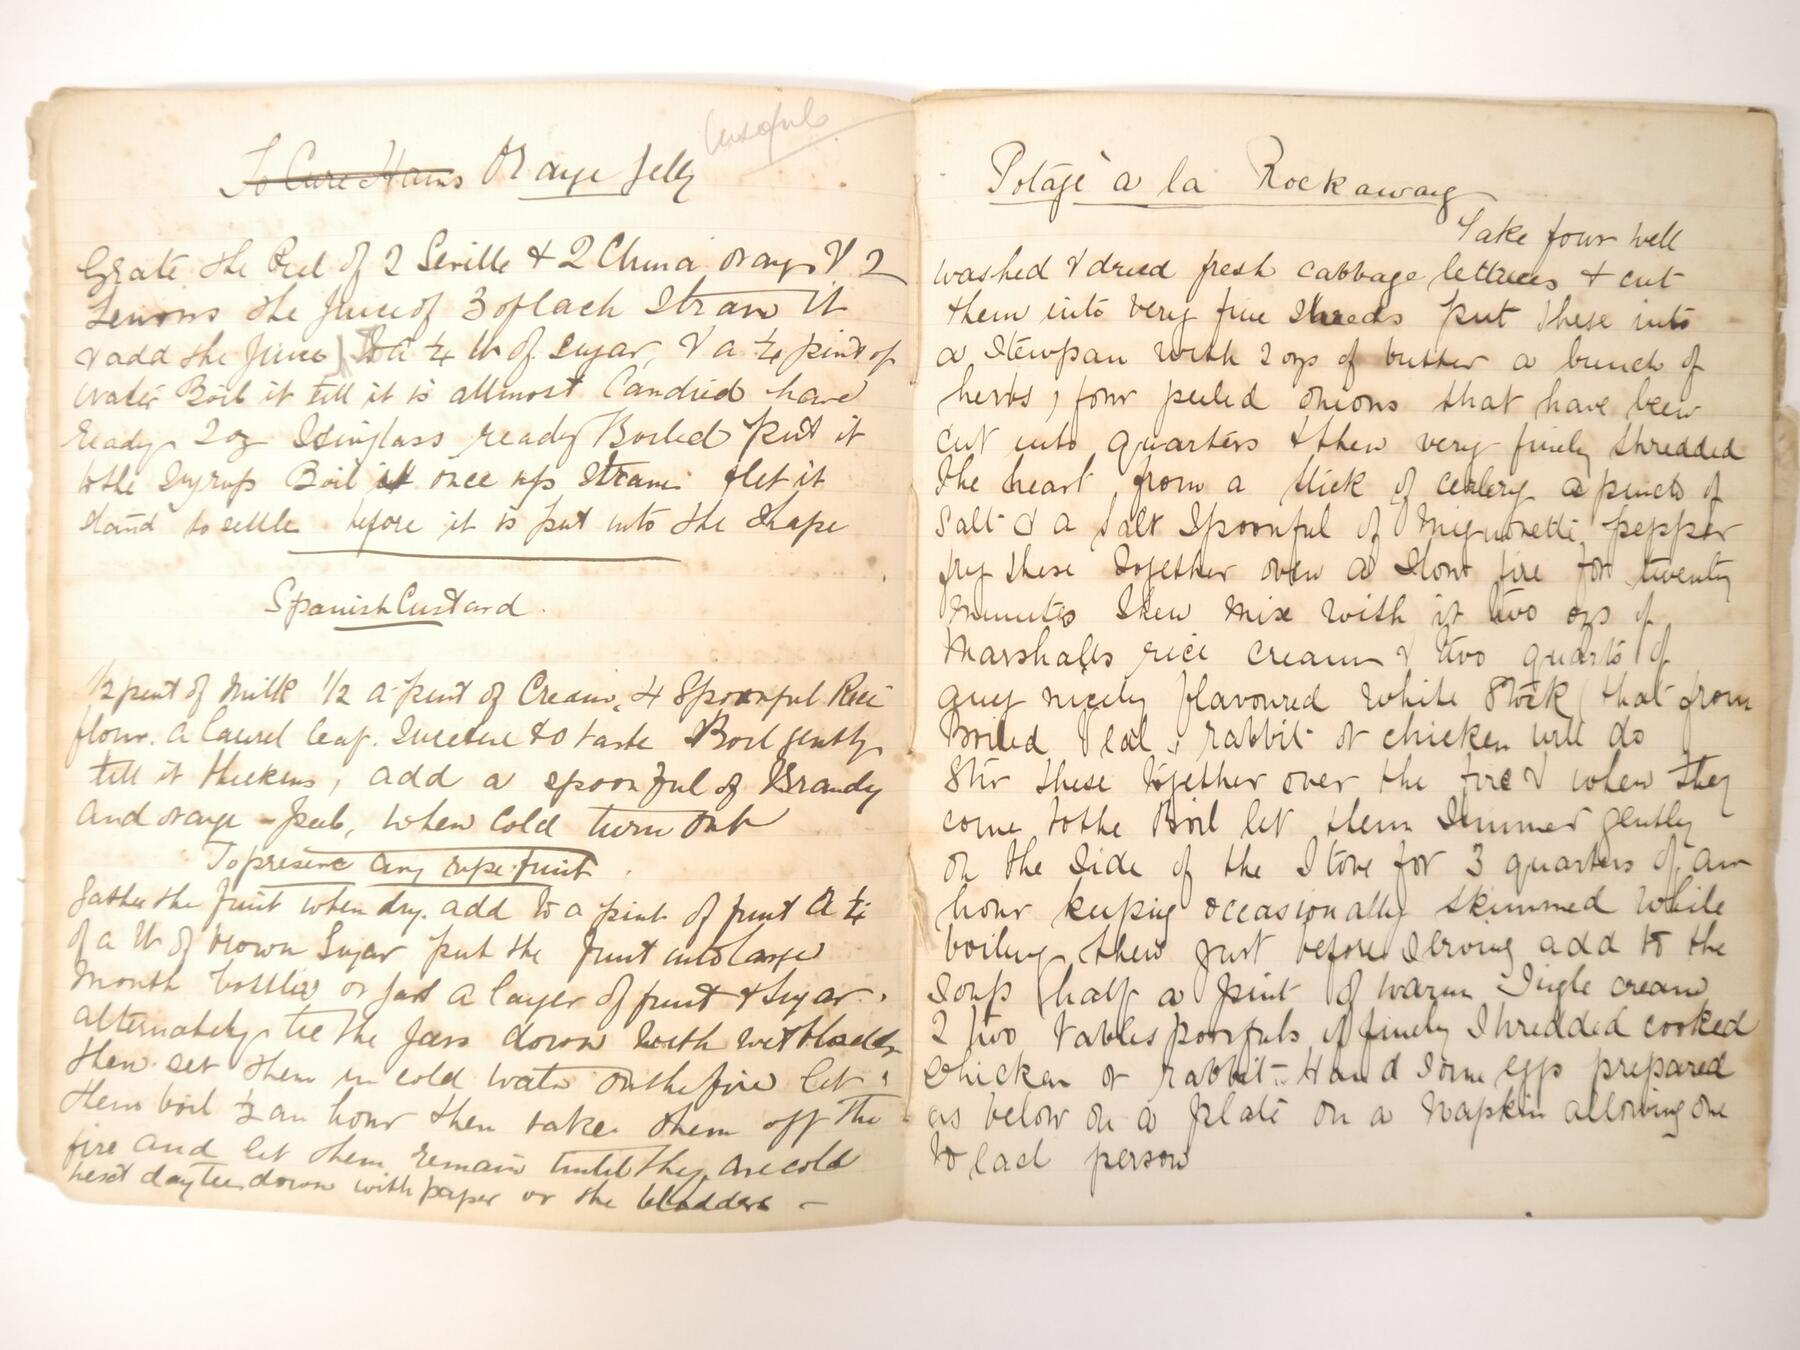 To Cure Hams Orange Jelly
Grate the Peel of 2 Seville & 2 China orangs & 2
Lemons the Juice of 3 of Each Strain it
& add the Juice to a ¼ lb of Sugar, & a ¼ pint of
water Boil it till it is allmost Candied have
ready 2 oz Isinglass ready Boiled put it
to the Syrup Boil it once up Strain & let it
Stand to settle before it is put into the Shape
Spanish Custard.
½ pint of Milk ½ a pint of Cream, 4 Spoonful Rice
flour. a laurel leaf. Sweeten to taste Boil gently
till it thickens, add a spoonful of Brandy
and orange-peel, when Cold turn out
To preserve any ripe fruit.
Gather the fruit when dry. add to a pint of fruit a ¼
of a lb of brown Sugar put the fruit into large
Mouth bottles or Jars a layer of fruit & Sugar
alternately tie the Jars down with wet bladders
then set them in cold water on the fire let
them boil ½ an hour then take them off the
fire and let them remain until they are cold
next day tie down with paper or the bladders –
Potage à la Rockaway
Take four well
washed & dried fresh cabbage lettuces & cut
them into very fine Shreds put these into
a Stewpan with 2 ozs of butter a bunch of
herbs, four peeled onions that have been
cut into quarters & then very finely shredded
the heart from a stick of celery a pinch of
Salt & a salt Spoonful of Mignonette pepper
fry these together over a Slow fire for twenty
minutes then mix with it two ozs of
Marshalls rice cream & two quarts of
any nicely flavoured white Stock (that from
Boiled Veal, rabbit or chicken will do
Stir these together over the fire & when they
come to the Boil let them Simmer gently
on the Side of the Stove for 3 quarters of an
hour keeping occasionally skimmed while
boiling then just before Serving add to the
Soup half a pint of warm Single cream
2 two tablespoonfuls of finely Shredded cooked
chicken or rabbit. Hand Some eggs prepared
as below on a plate on a napkin allowing one
to each person